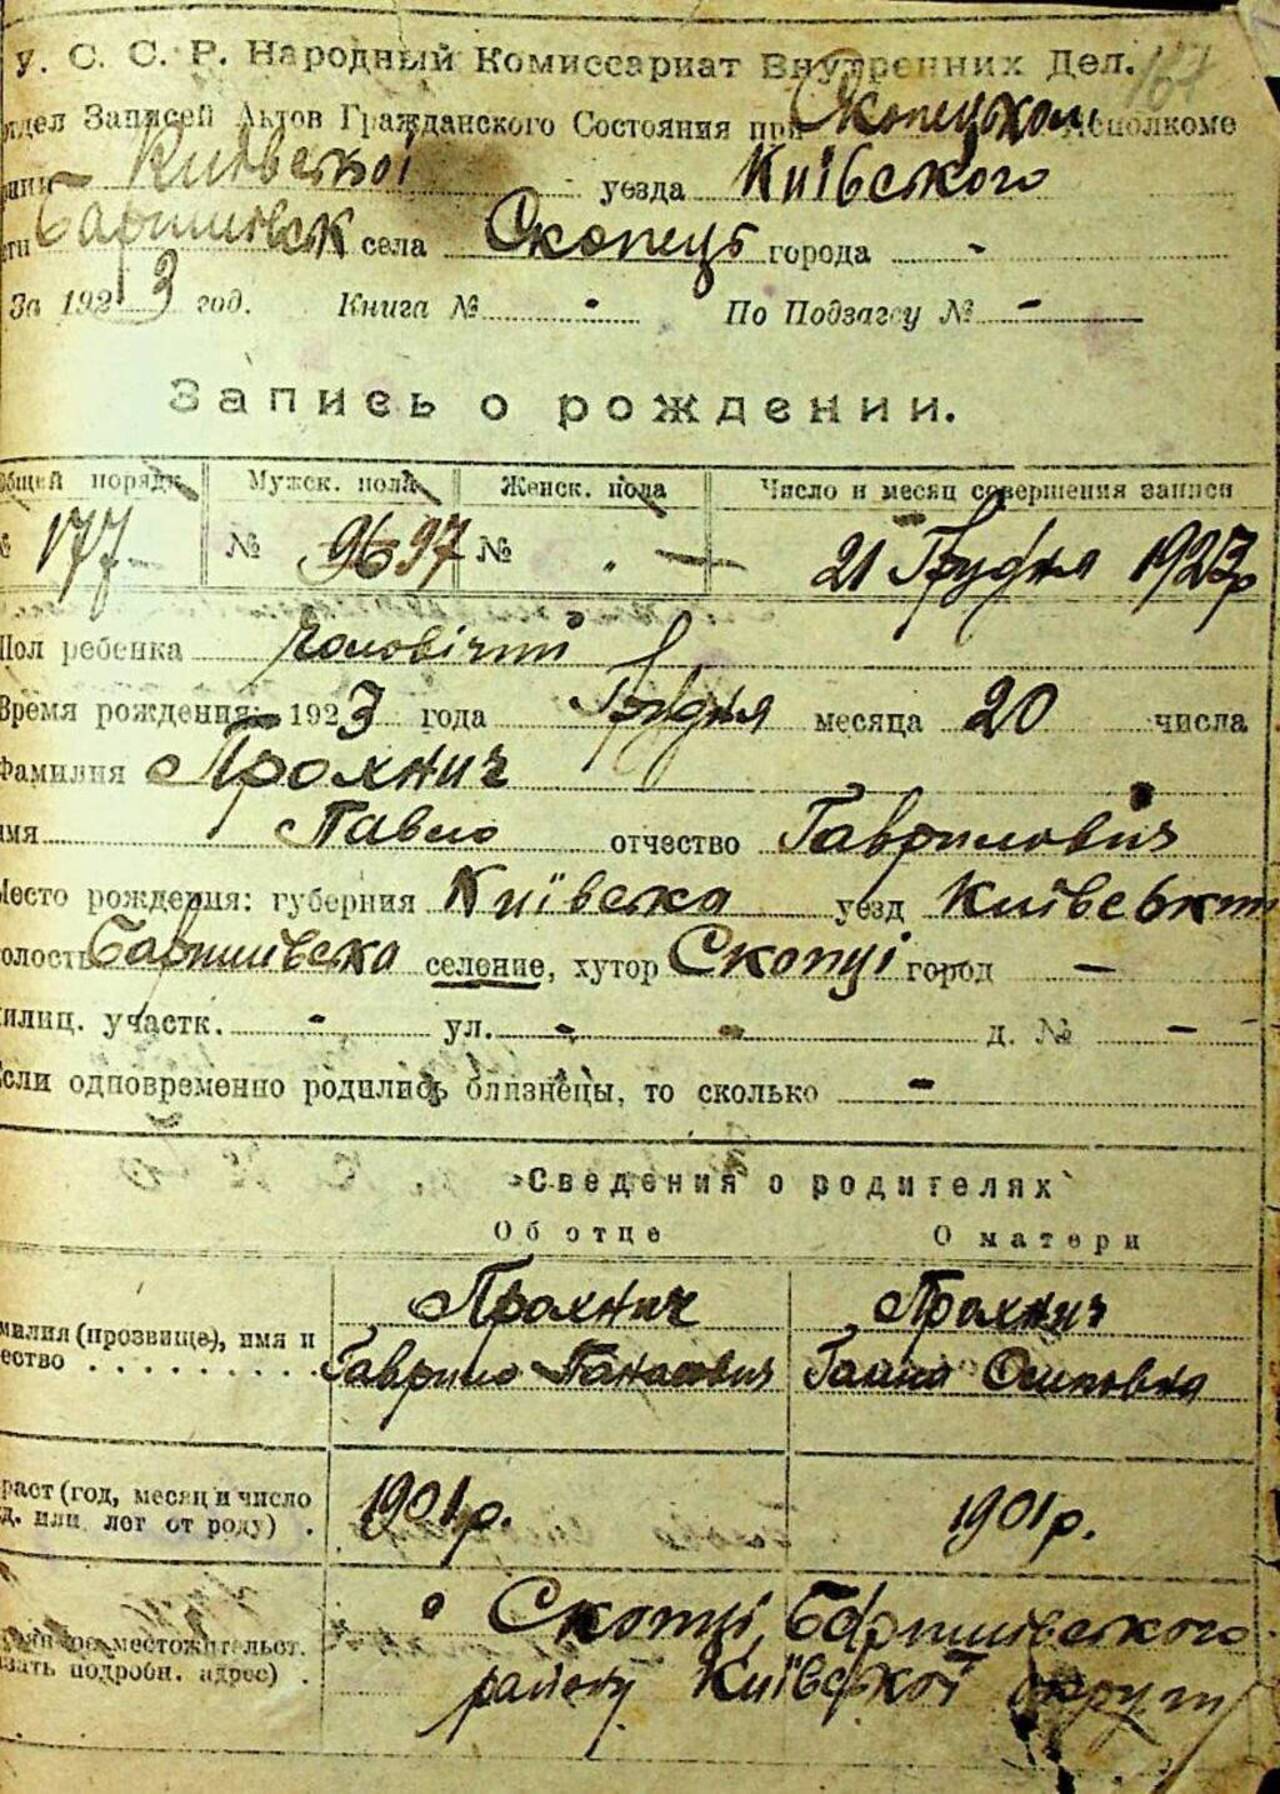 У. С. С. Р. Народный Комиссариат Внутренних Дел. 167
тдел Записей Актов Гражданского Состояния при Скопецком Исполкоме
Київської уезда Київского
Баришівск села Скопець города -
За 1923 год. Книга № - По Подзагсу № -
Запись о рождении.
Общей порядк. Мужск. пола Женск. пола Число и месяц совершения записи
№ 177 № 96 97 № - 21 Грудня 1923р
Пол ребенка чоловічий
Время рождения: 1923 года Грудня месяца 20 числа
Фамилия Прохнич
имя Павло отчество Гаврилович
Место рождения: губерния Київска уезд Київський
олость Баришівска селение, хутор Скопці город -
илищ. участк. - ул. - - д. № -
Если одновременно родились близнецы, то сколько -
Сведения о родителях
Об отце О матери
Прохнич Прохнич
милия (прозвище), имя и
ество . . . . . . . . . Гаврило Панасович Ганна Осиповна
раст (год, месяц и число 1901р. 1901р.
д. или лет от роду) .
Скопці, Баришівского
местожительст.
зать подробн. адрес) . району Київської округи